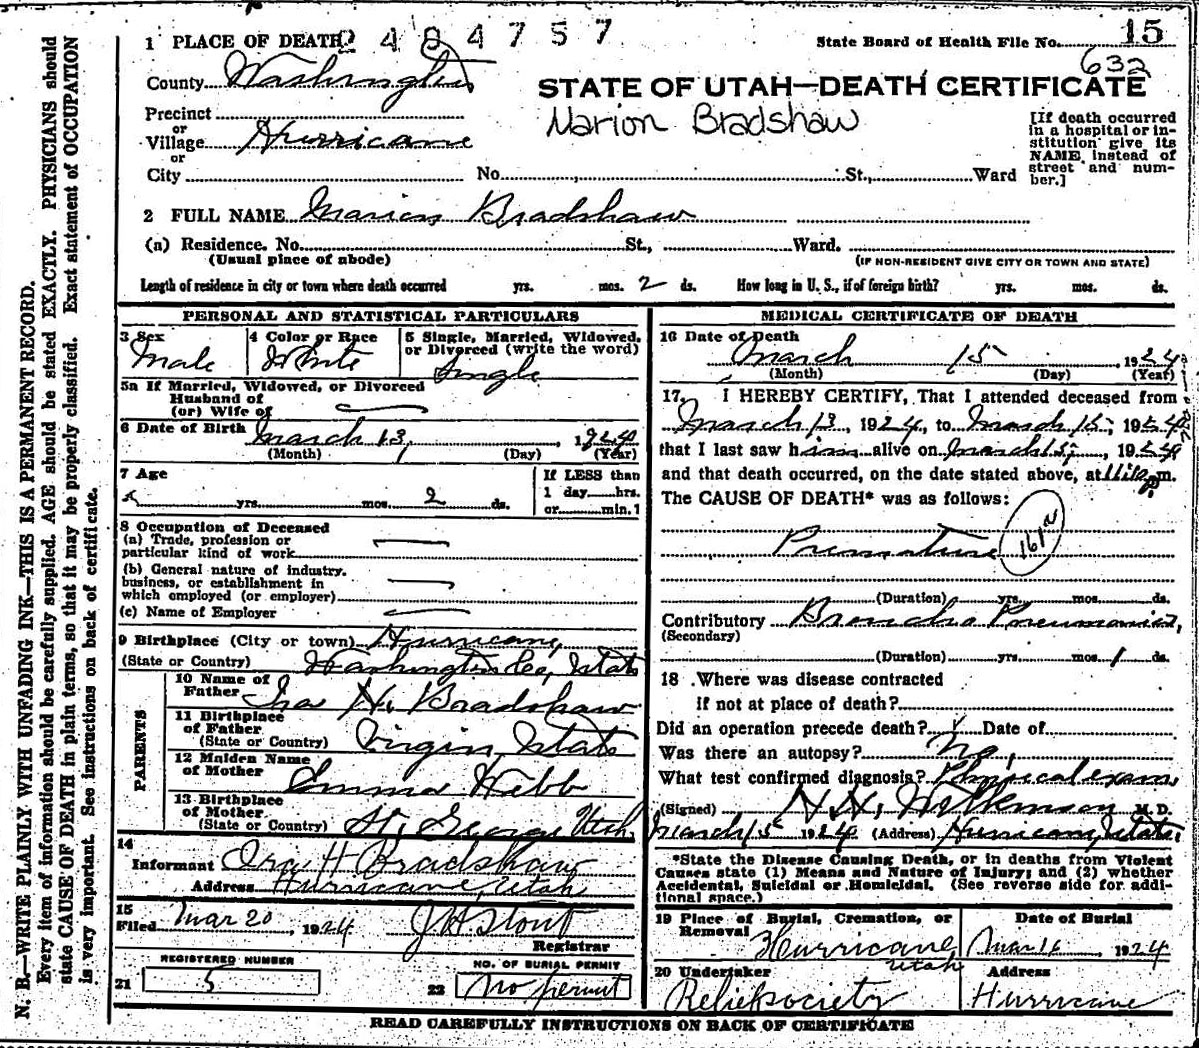 1 PLACE OF DEATH 2 4 0 4 7 5 7
State Board of Health File No. 15
632
County Washington
STATE OF UTAH—DEATH CERTIFICATE
Marion Bradshaw
Precinct
or
Village Hurricane
or
City No. St., Ward
[If death occurred
in a hospital or in-
stitution give its
NAME, instead of
street and num-
ber.]
2 FULL NAME Marion Bradshaw
(a) Residence. No. St., Ward.
(Usual place of abode) (IF NON-RESIDENT GIVE CITY OR TOWN AND STATE)
Length of residence in city or town where death occurred yrs. mos. 2 ds. How long in U. S., if of foreign birth? yrs. mos. ds.
PERSONAL AND STATISTICAL PARTICULARS
3 Sex
Male
4 Color or Race
White
5 Single, Married, Widowed,
or Divorced (write the word)
Single
5a If Married, Widowed, or Divorced
Husband of
(or) Wife of
6 Date of Birth March 13, 1924
(Month) (Day) (Year)
7 Age
yrs. mos. 2 ds.
If LESS than
1 day hrs.
or min.?
8 Occupation of Deceased
(a) Trade, profession or
particular kind of work
(b) General nature of industry.
business, or establishment in
which employed (or employer)
(c) Name of Employer
9 Birthplace (City or town) Hurricane,
(State or Country) Washington Co, Utah
PARENTS
10 Name of
Father Ira H. Bradshaw
11 Birthplace
of Father
(State or Country) Virgin, Utah
12 Maiden Name
of Mother Emma Webb
13 Birthplace
of Mother.
(State or Country) St. George Utah,
14
Informant Ira H Bradshaw
Address Hurricane, Utah
15
Filed Mar 20, 1924 J. H Stout
Registrar
21 REGISTERED NUMBER
5
22 NO. OF BURIAL PERMIT
No permit
MEDICAL CERTIFICATE OF DEATH
16 Date of Death
March 15 1924
(Month) (Day) (Year)
17. I HEREBY CERTIFY, That I attended deceased from
March 13, 1924, to March 15, 1924
that I last saw him alive on March 15, 1924
and that death occurred, on the date stated above, at m.
The CAUSE OF DEATH* was as follows:
Premature 161a
(Duration) yrs. mos. ds.
Contributory Broncho Pneumonia,
(Secondary)
(Duration) yrs. mos. 1 ds.
18 Where was disease contracted
If not at place of death?
Did an operation precede death? Date of
Was there an autopsy? No,
What test confirmed diagnosis? Physical exam,
(Signed) N. N. Wilkinson M. D.
March 15 1924 (Address) Hurricane, Utah.
*State the Disease Causing Death, or in deaths from Violent
Causes state (1) Means and Nature of Injury; and (2) whether
Accidental, Suicidal or Homicidal. (See reverse side for addi-
tional space.)
19 Place of Burial, Cremation, or
Removal
Hurricane, Utah
Date of Burial
Mar 16 1924
20 Undertaker
Relief society
Address
Hurricane
READ CAREFULLY INSTRUCTIONS ON BACK OF CERTIFICATE
N. B.—WRITE PLAINLY WITH UNFADING INK—THIS IS A PERMANENT RECORD.
Every item of information should be carefully supplied. AGE should be stated EXACTLY. PHYSICIANS should
state CAUSE OF DEATH in plain terms, so that it may be properly classified. Exact statement of OCCUPATION
is very important. See instructions on back of certificate.